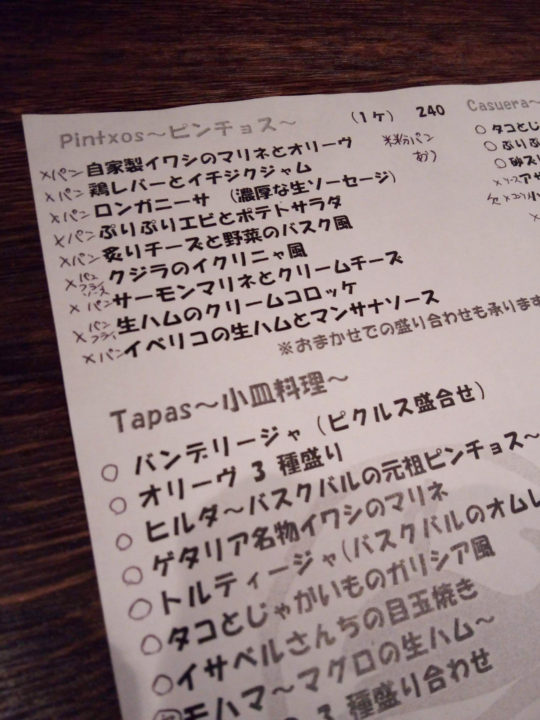 Pintxos～ピンチョス～ (1ケ) 240
×パン 自家製イワシのマリネとオリーヴ 米粉パン
×パン 鶏レバーとイチジクジャム あり
×パン ロンガニーサ (濃厚な生ソーセージ)
×パン ぷりぷりエビとポテトサラダ
×パン 炙りチーズと野菜のバスク風
×パン フライ ソース クジラのイクリニャ風
×パン サーモンマリネとクリームチーズ
×パン フライ 生ハムのクリームコロッケ
×パン イベリコの生ハムとマンサナソース
※おまかせでの盛り合わせも承ります
Tapas～小皿料理～
○ バンデリージャ (ピクルス盛合せ)
○ オリーヴ 3 種盛り
○ ヒルダ～バスクバルの元祖ピンチョス～
○ ゲタリア名物イワシのマリネ
○ トルティージャ(バスクバルのオムレ
○ タコとじゃがいものガリシア風
○ イサベルさんちの目玉焼き
○ モハマ～マグロの生ハム～
3 種盛り合わせ
Casuera～
○ タコとじ
○ ぷりぷ
○ 砂ズリ
×ソース アサ